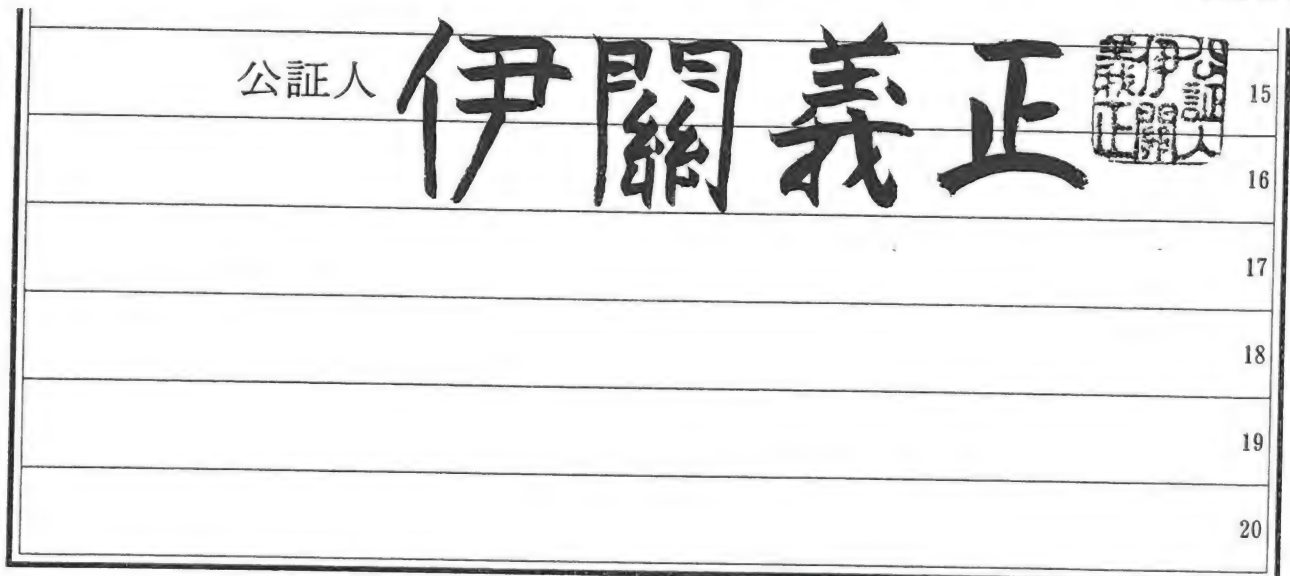 公証人 伊關義正
公証人伊關義正
15
16
17
18
19
20